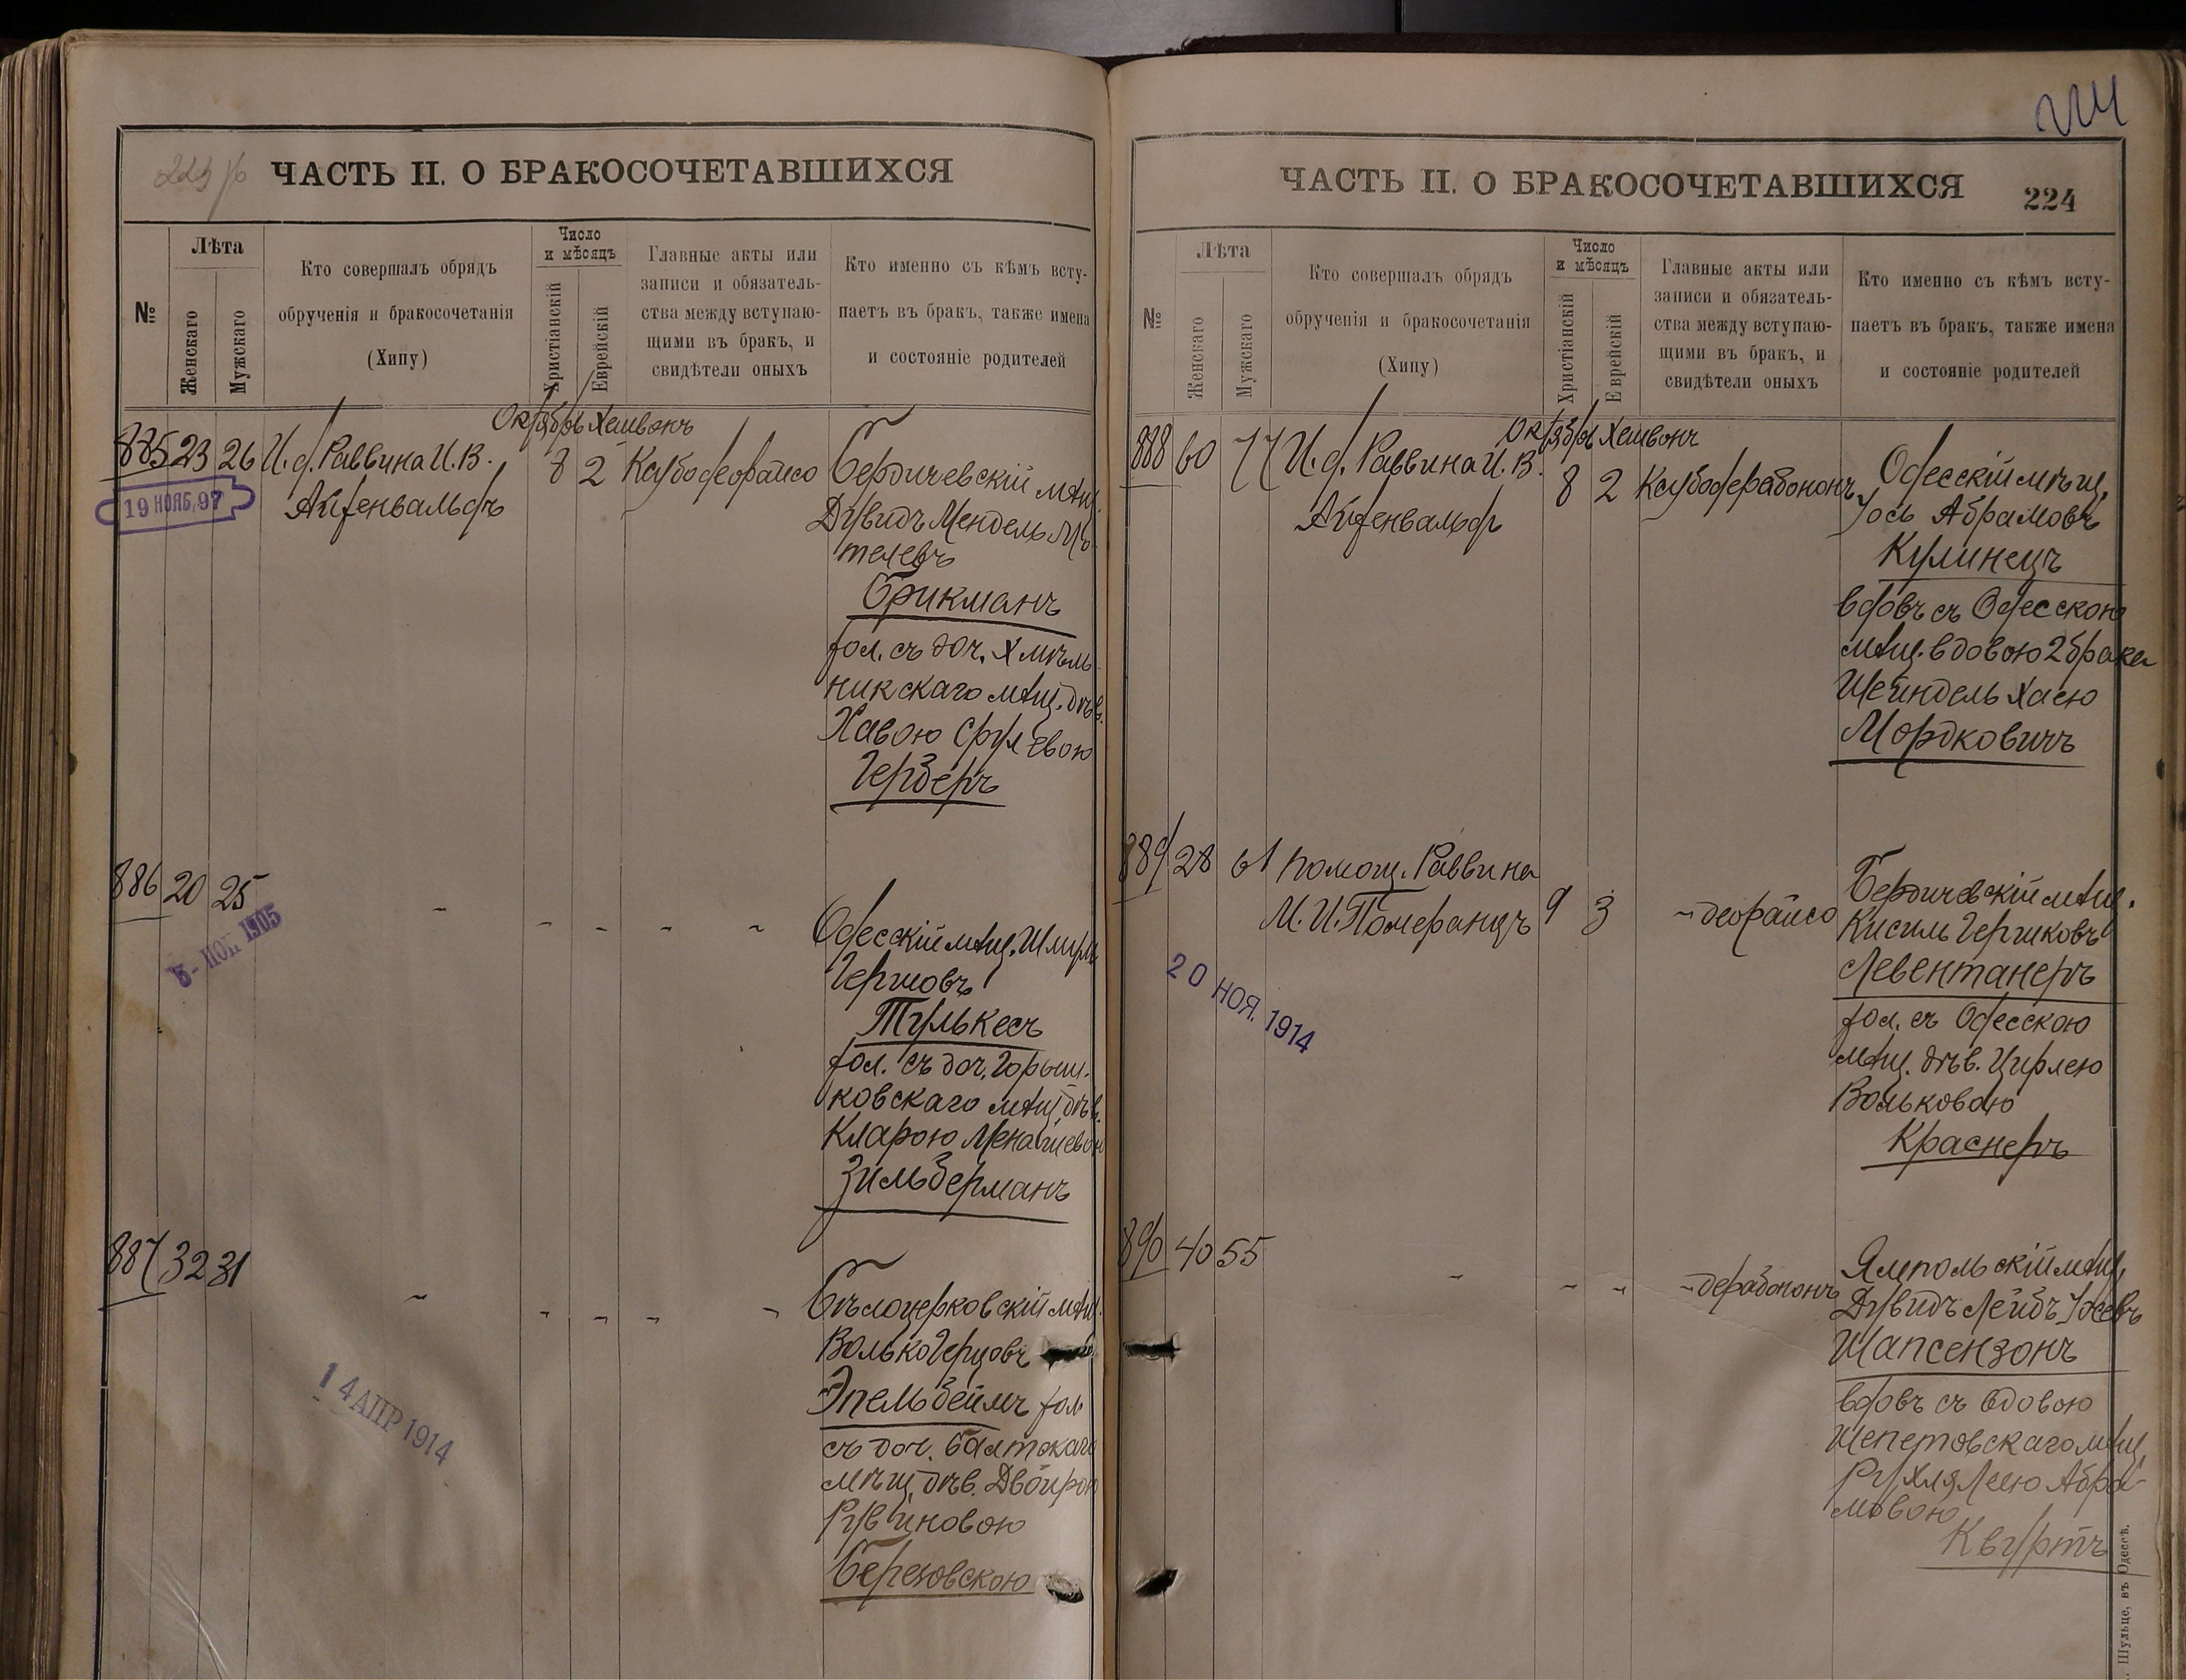 223 об
ЧАСТЬ II. О БРАКОСОЧЕТАВШИХСЯ
№
Лѣта
Женскаго
Мужскаго
Кто совершалъ обрядъ
обрученія и бракосочетанія
(Хипу)
Число
и мѣсяцъ
Христіанскій
Еврейскій
Главные акты или
записи и обязатель-
ства между вступаю-
щими въ бракъ, и
свидѣтели оныхъ
Кто именно съ кѣмъ всту-
паетъ въ бракъ, также имена
и состояніе родителей
Октябрь Хешвонъ
885 23 26 И. д. Раввина И. В. 8 2 Ксубо деорайсо
Айзенвальдъ
19 НОЯБ. 97
Бердичевскій мѣщ.
Дувидъ Мендель
телевъ
Брикманъ
хол. съ доч. Хмѣль-
никскаго мѣщ. дѣв.
Хавою Срулевою
Герберъ
886 20 25 - - - - -
5 - 1905
Одесскій мѣщ. Шмуль
Гершовъ
Тулькесъ
хол. съ доч. Горыш-
ковскаго мѣщ. дѣв.
Кларою
Зильберманъ
887 32 31 - - - - -
14 АПР 1914
Бѣлоцерковскій мѣщ.
Волько Герцовъ
Эпельбеймъ хол
съ доч. Балтскаго
мѣщ. дѣв. Двойрою
Рувиновою
Березовскою
224
ЧАСТЬ II. О БРАКОСОЧЕТАВШИХСЯ
224
№
Лѣта
Женскаго
Мужскаго
Кто совершалъ обрядъ
обрученія и бракосочетанія
(Хипу)
Число
и мѣсяцъ
Христіанскій
Еврейскій
Главные акты или
записи и обязатель-
ства между вступаю-
щими въ бракъ, и
свидѣтели оныхъ
Кто именно съ кѣмъ всту-
паетъ въ бракъ, также имена
и состояніе родителей
Октябрь Хешвонъ
888 60 77 И. д. Раввина И. В. 8 2 Ксубо дерабононъ
Айзенвальдъ
Одесскій мѣщ.
Іось Абрамовъ
Кулинецъ
вдовъ съ Одесскою
мѣщ. вдовою 2 брака
Шейндель Хаею
Мордковичъ
889 28 61 Помощ. Раввина
М. И. Померанцъ 9 3 - деорайсо
20 НОЯ. 1914
Бердичевскій мѣщ.
Кисиль Гершковъ
Левентанеръ
хол. съ Одесскою
мѣщ. дѣв. Цирлею
Вольковою
Краснеръ
890 40 55 - - - - дерабононъ
Ямпольскій мѣщ.
Дувидъ Лейбъ
Шапсензонъ
вдовъ съ вдовою
Шепетовскаго мѣщ.
Рухля Леею Абра-
мовою
Квуртъ
Шульце, въ Одессѣ.